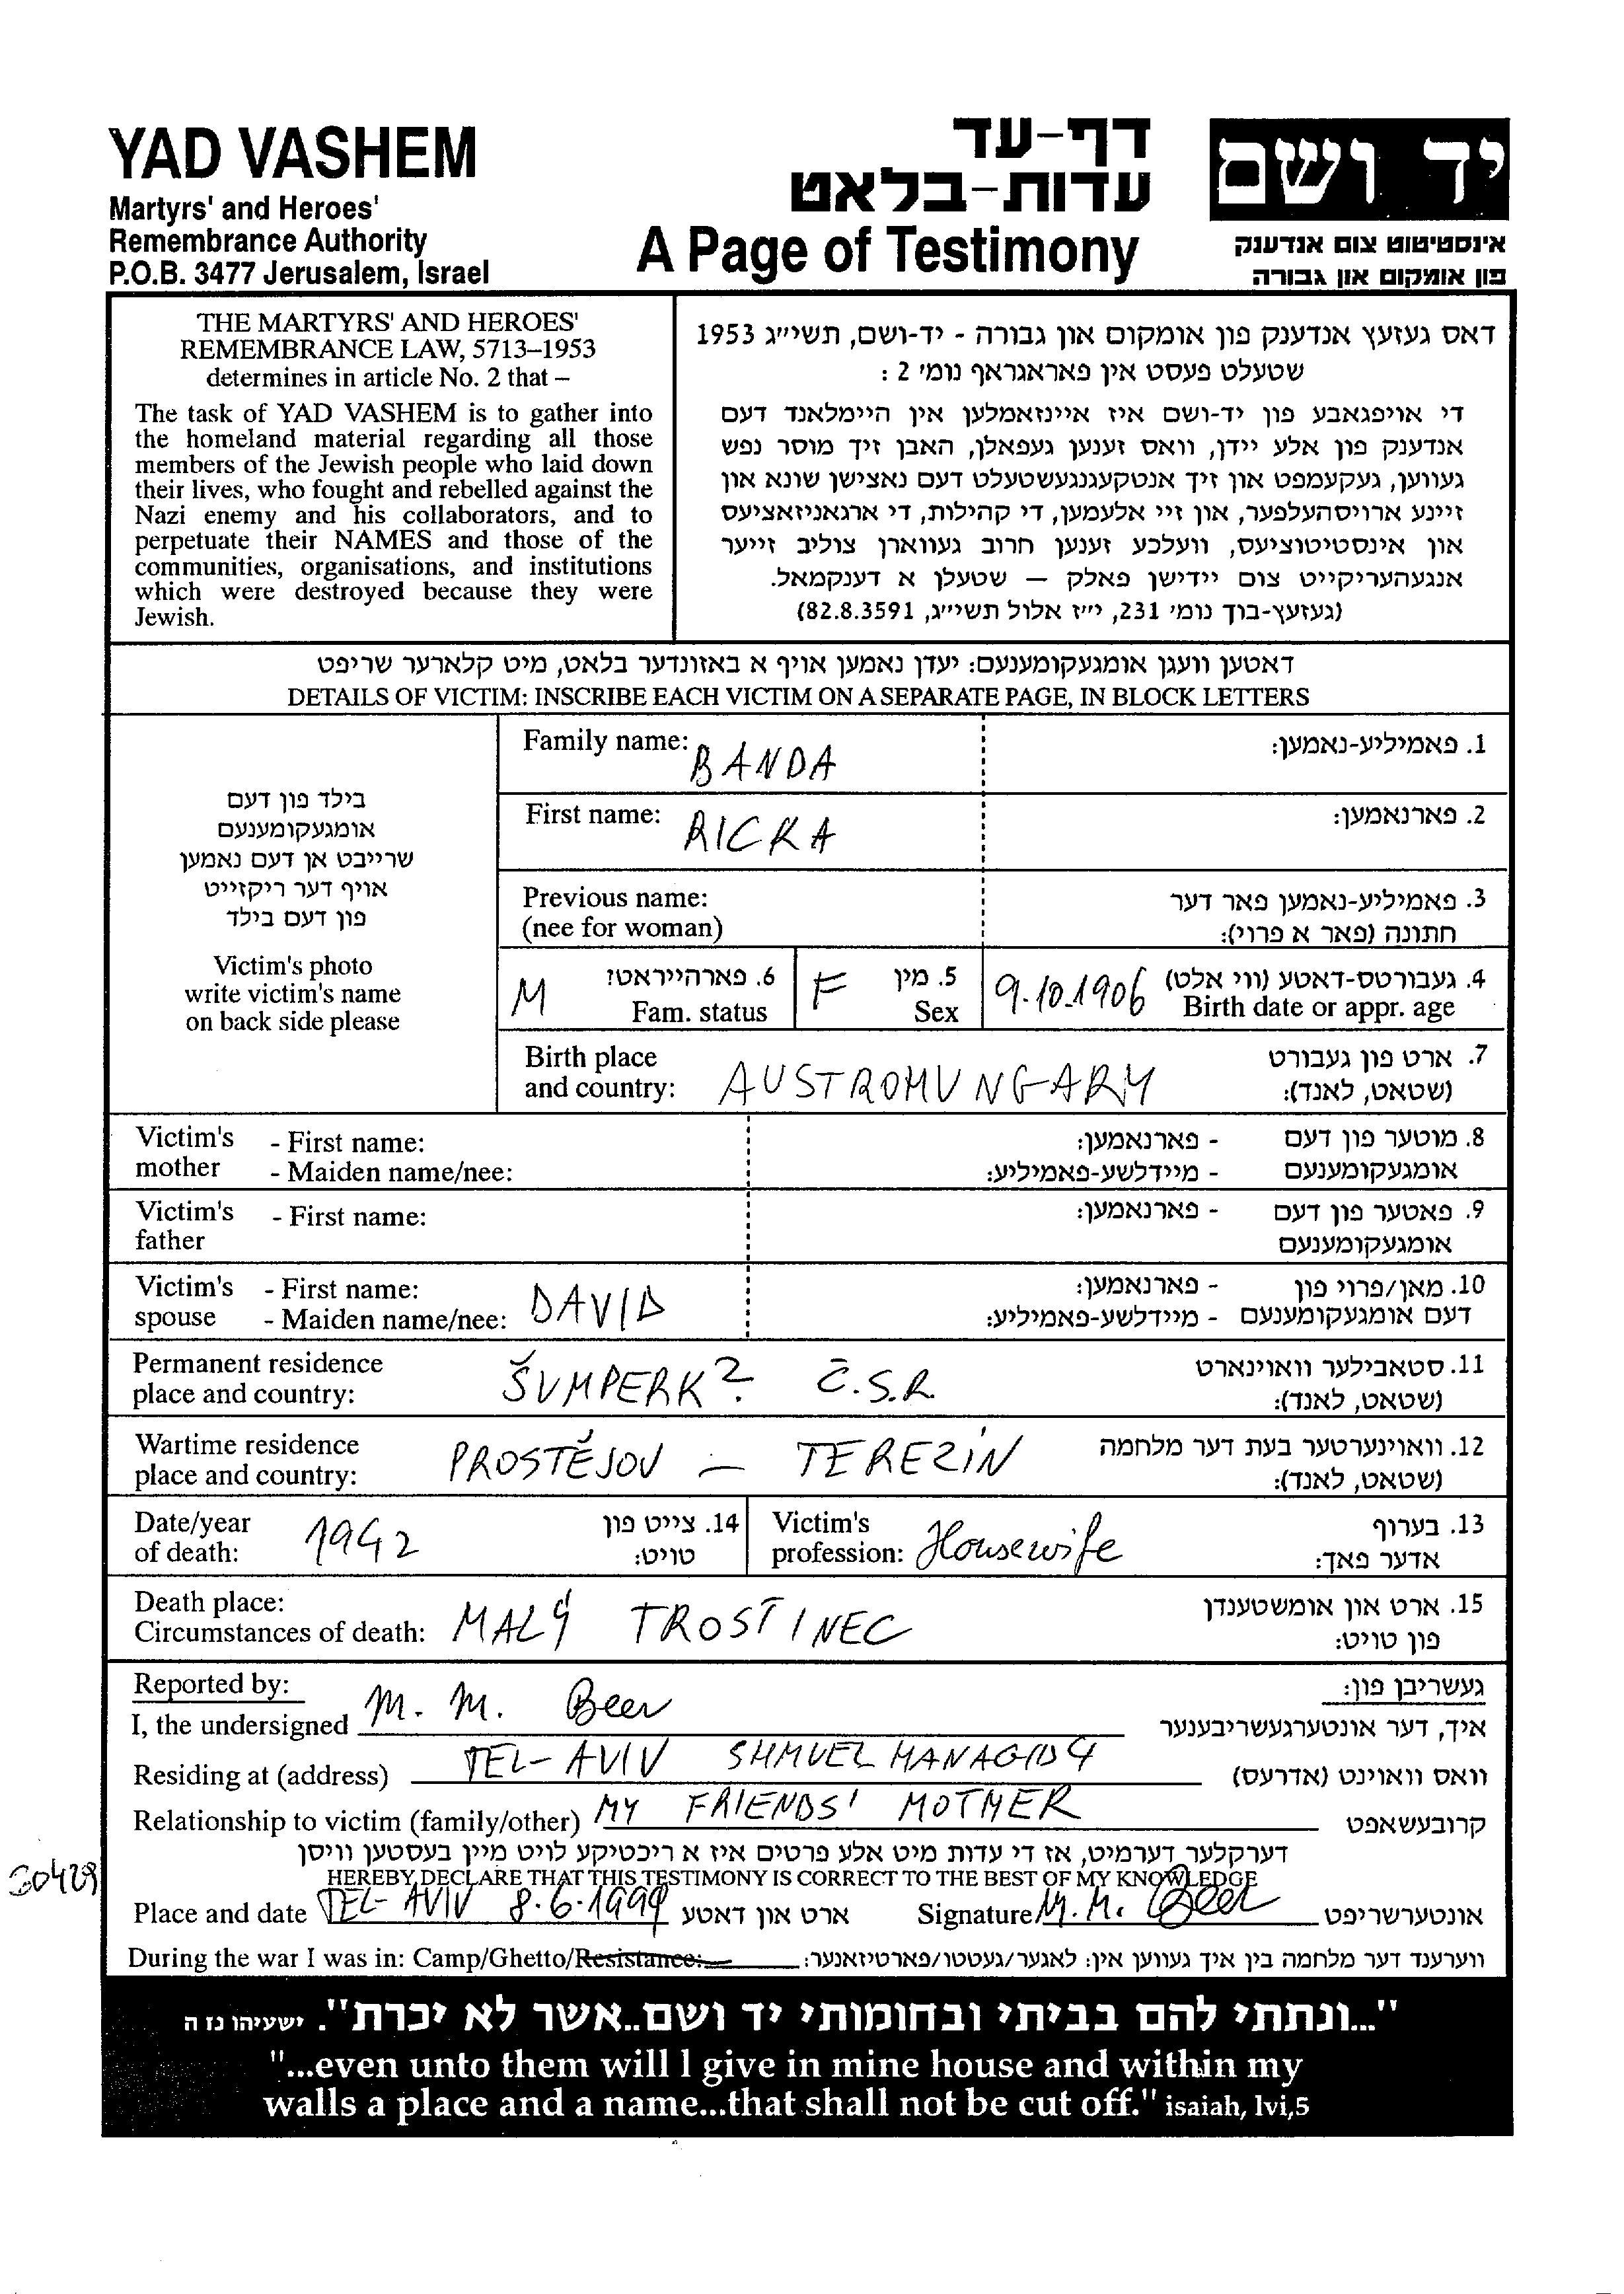 YAD VASHEM
Martyrs' and Heroes'
Remembrance Authority
P.O.B. 3477 Jerusalem, Israel
דף-עד
עדות-בלאט
A Page of Testimony
יד ושם
אינסטיטוט צום אנדענק
פון אומקום און גבורה
THE MARTYRS' AND HEROES'
REMEMBRANCE LAW, 5713–1953
determines in article No. 2 that –
The task of YAD VASHEM is to gather into
the homeland material regarding all those
members of the Jewish people who laid down
their lives, who fought and rebelled against the
Nazi enemy and his collaborators, and to
perpetuate their NAMES and those of the
communities, organisations, and institutions
which were destroyed because they were
Jewish.
דאס געזעץ אנדענק פון אומקום און גבורה - יד-ושם, תשי״ג 1953
שטעלט פעסט אין פאראגראף נומ׳ 2 :
די אויפגאבע פון יד-ושם איז איינזאמלען אין היימלאנד דעם
אנדענק פון אלע יידן, וואס זענען געפאלן, האבן זיך מוסר נפש
געווען, געקעמפט און זיך אנטקעגנגעשטעלט דעם נאצישן שונא און
זיינע ארויסהעלפער, און זיי אלעמען, די קהילות, די ארגאניזאציעס
און אינסטיטוציעס, וועלכע זענען חרוב געווארן צוליב זייער
אנגעהעריקייט צום יידישן פאלק — שטעלן א דענקמאל.
(געזעץ-בוך נומ׳ 231, י״ז אלול תשי״ג, 82.8.3591)
דאטען וועגן אומגעקומענעם: יעדן נאמען אויף א באזונדער בלאט, מיט קלארער שריפט
DETAILS OF VICTIM: INSCRIBE EACH VICTIM ON A SEPARATE PAGE, IN BLOCK LETTERS
בילד פון דעם
אומגעקומענעם
שרייבט אן דעם נאמען
אויף דער ריקזייט
פון דעם בילד
Victim's photo
write victim's name
on back side please
Family name: BANDA 1. פאמיליע-נאמען:
First name: RICKA 2. פארנאמען:
Previous name:
(nee for woman)
3. פאמיליע-נאמען פאר דער
חתונה (פאר א פרוי):
M 6. פארהייראט?
Fam. status
F 5. מין
Sex
9.10.1906 4. געבורטס-דאטע (ווי אלט)
Birth date or appr. age
Birth place
and country: AUSTROHUNGARY
7. ארט פון געבורט
(שטאט, לאנד):
Victim's mother - First name:
- Maiden name/nee:
8. מוטער פון דעם אומגעקומענעם - פארנאמען:
- מיידלשע-פאמיליע:
Victim's father - First name:
9. פאטער פון דעם אומגעקומענעם - פארנאמען:
Victim's spouse - First name:
- Maiden name/nee: DAVID
10. מאן/פרוי פון דעם אומגעקומענעם - פארנאמען:
- מיידלשע-פאמיליע:
Permanent residence
place and country: ŠUMPERK? Č.S.R.
11. סטאבילער וואוינארט
(שטאט, לאנד):
Wartime residence
place and country: PROSTĚJOV — TEREZÍN
12. וואוינערטער בעת דער מלחמה
(שטאט, לאנד):
Date/year
of death: 1942
14. צייט פון
טויט:
Victim's
profession: Housewife
13. בערוף
אדער פאך:
Death place:
Circumstances of death: MALÝ TROSTINEC
15. ארט און אומשטענדן
פון טויט:
Reported by: געשריבן פון:
I, the undersigned M. M. Beer איך, דער אונטערגעשריבענער
Residing at (address) TEL-AVIV SHMUEL HANAGID 4 וואס וואוינט (אדרעס)
Relationship to victim (family/other) MY FRIENDS' MOTHER קרובעשאפט
דערקלער דערמיט, אז די עדות מיט אלע פרטים איז א ריכטיקע לויט מיין בעסטען וויסן
HEREBY DECLARE THAT THIS TESTIMONY IS CORRECT TO THE BEST OF MY KNOWLEDGE
Place and date TEL-AVIV 8.6.1999 ארט און דאטע Signature M. M. Beer אונטערשריפט
During the war I was in: Camp/Ghetto/Resistance: ווערענד דער מלחמה בין איך געווען אין: לאגער/געטטו/פארטיזאנער:
"...ונתתי להם בביתי ובחומותי יד ושם..אשר לא יכרת". ישעיהו נז ה
"...even unto them will I give in mine house and within my
walls a place and a name...that shall not be cut off." isaiah, lvi,5